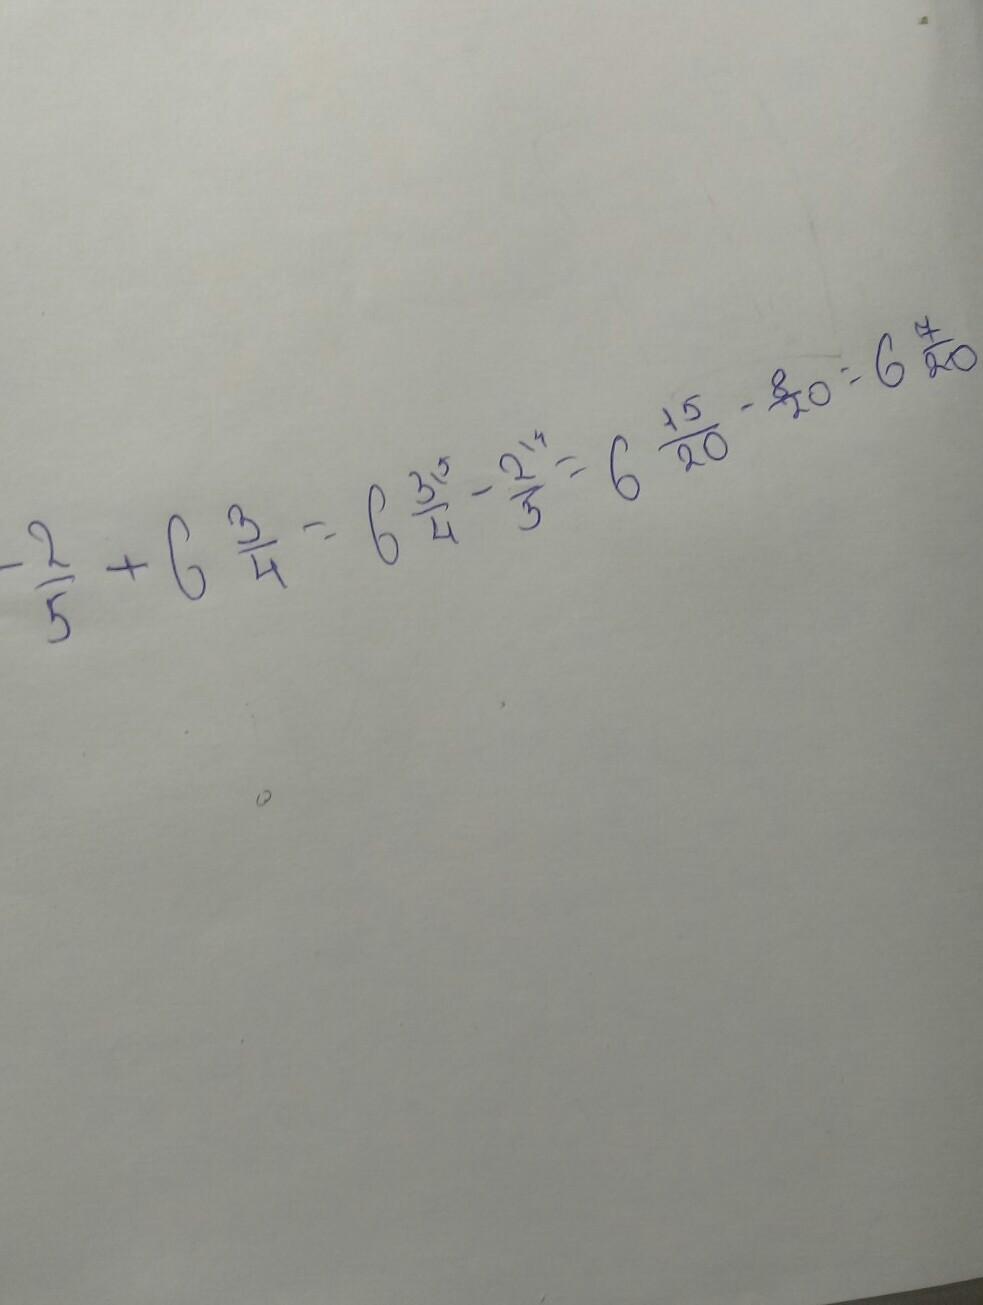 - 2/5 + 6 3/4 = 6 3/4 \5 - 2/5 \4 = 6 15/20 - 8/20 = 6 7/20